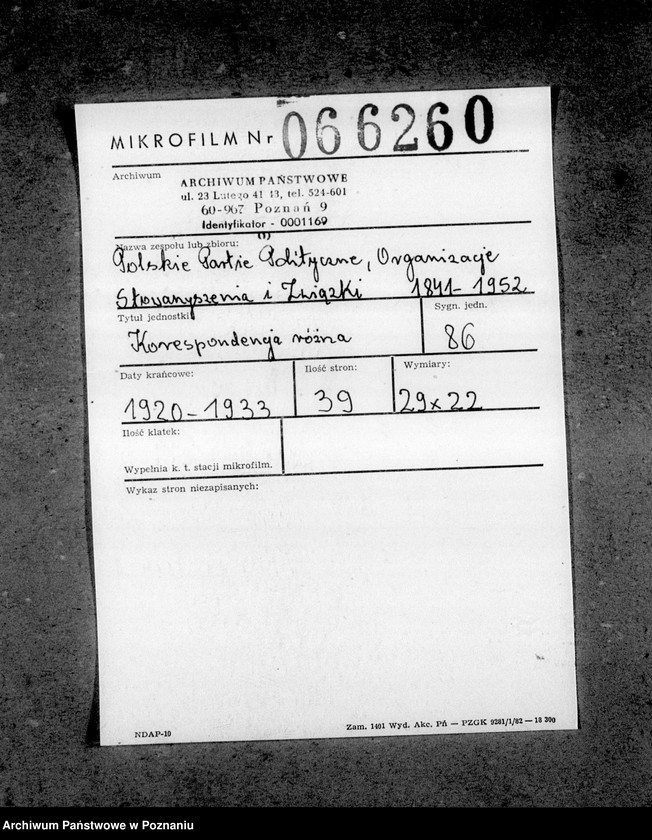 MIKROFILM Nr 066260
Archiwum
ARCHIWUM PAŃSTWOWE
ul. 23 Lutego 41 43, tel. 524-601
60-967 Poznań 9
Identyfikator - 0001169
Nazwa zespołu lub zbioru:
Polskie Partie Polityczne, Organizacje
Stowarzyszenia i Związki 1841-1952
Tytuł jednostki
Sygn. jedn.
Korespondencja różna
86
Daty krańcowe:
Ilość stron:
Wymiary:
1920-1933
39
29x22
Ilość klatek:
Wypełnia k. t. stacji mikrofilm.
Wykaz stron niezapisanych:
NDAP-10
Zam. 1401 Wyd. Akc. Pń — PZGK 9281/1/82 — 18 300
Archiwum Państwowe w Poznaniu